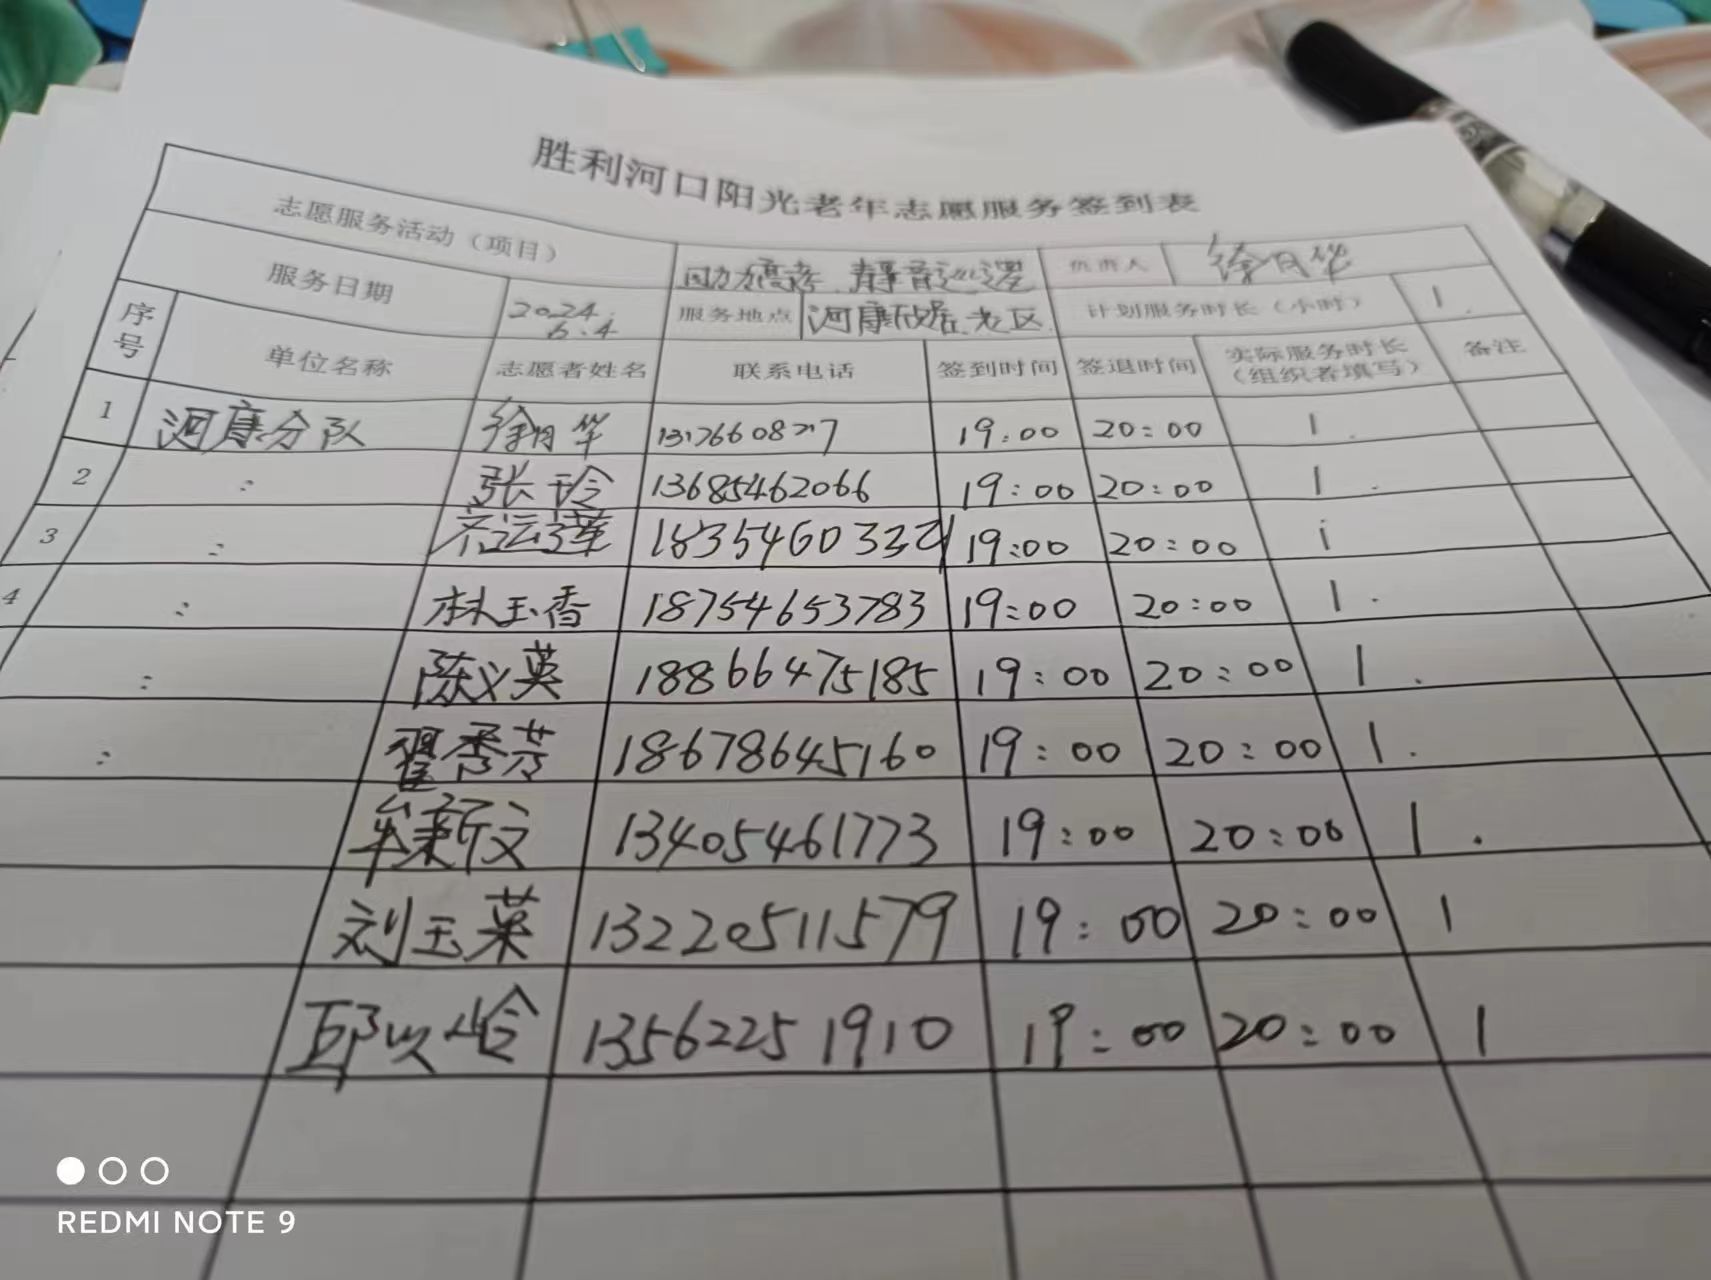 胜利河口阳光老年志愿服务签到表
志愿服务活动（项目） 助力高考 静音巡逻 负责人 徐月华
服务日期 2024.6.4 服务地点 河康欣居老区 计划服务时长（小时） 1.
序号 单位名称 志愿者姓名 联系电话 签到时间 签退时间 实际服务时长（组织者填写） 备注
1 河康分队 徐月华 19:00 20:00 1.
2 〃 张玲 13685462066 19:00 20:00 1.
3 〃 齐运莲 19:00 20:00 1
4 〃 林玉香 18754653783 19:00 20:00 1.
〃 陈义英 18866475185 19:00 20:00 1.
〃 翟秀芳 18678645160 19:00 20:00 1.
牟新文 13405461773 19:00 20:00 1.
刘玉菜 13220511579 19:00 20:00 1
13562251910 19:00 20:00 1
REDMI NOTE 9